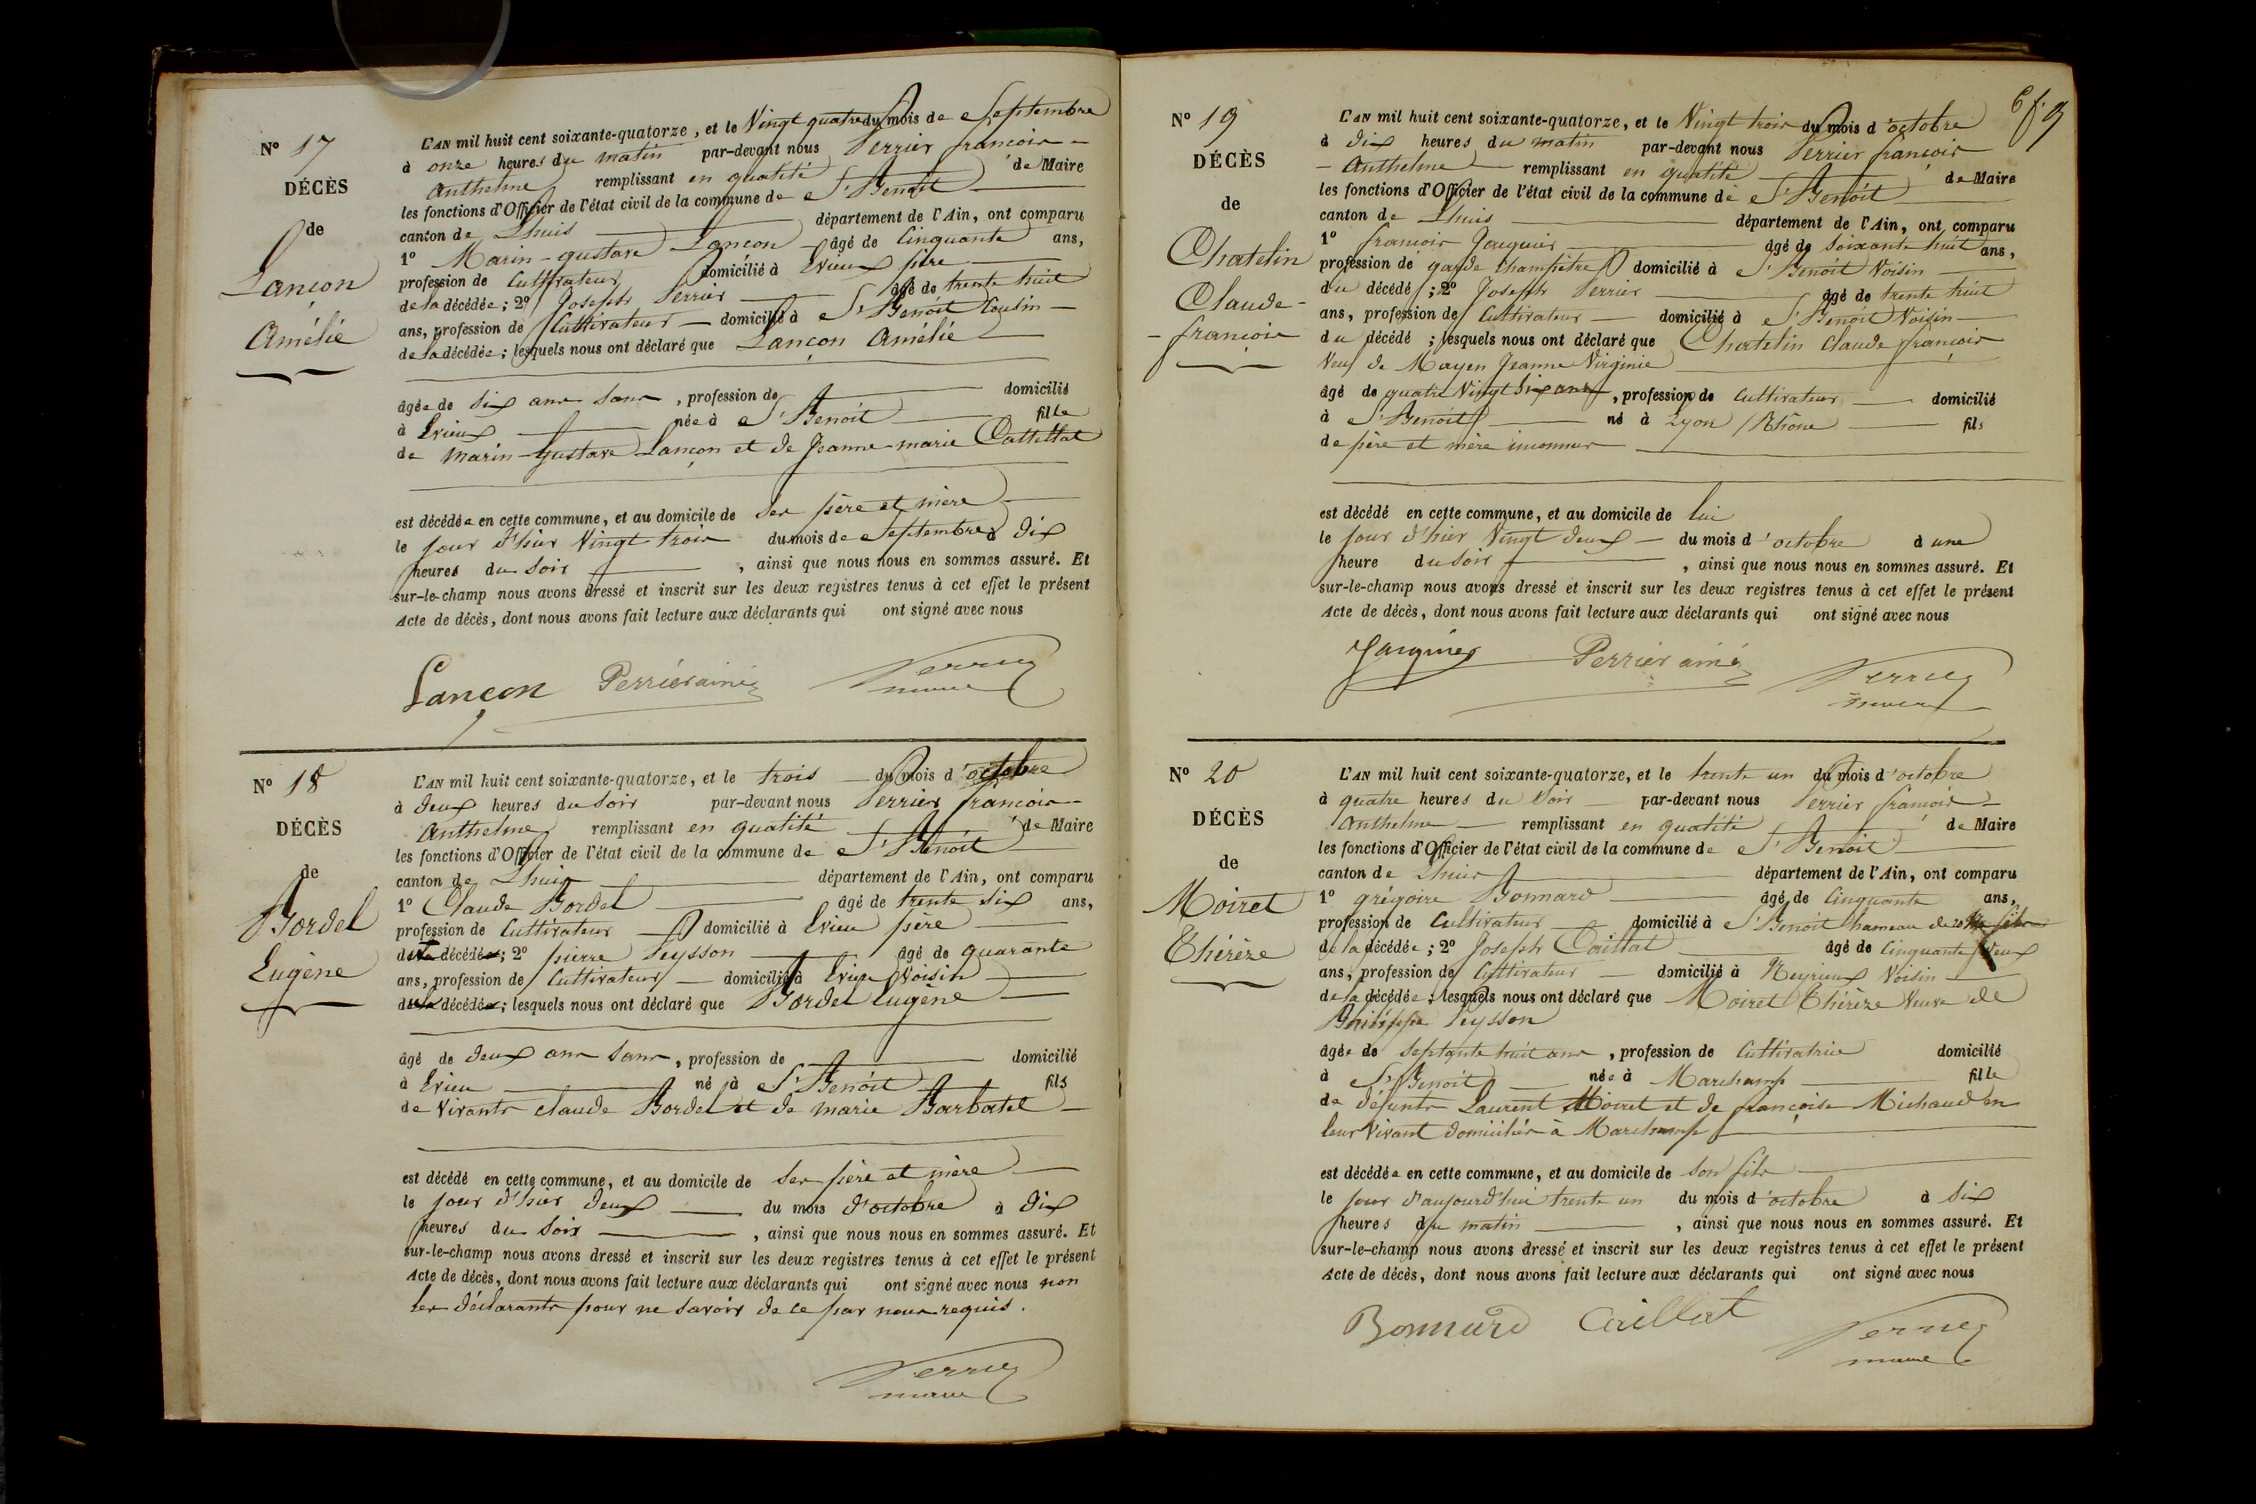 N° 17
DÉCÈS
de
Lançon
Amélie
L'AN mil huit cent soixante-quatorze, et le Vingt quatre du mois de Septembre
à onze heures du matin par-devant nous Perrier françois
Anthelme remplissant en qualité de Maire
les fonctions d'Officier de l'état civil de la commune de St Benoît
canton de Lhuis département de l'Ain, ont comparu
1° Marin-gustave Lançon âgé de Cinquante ans,
profession de Cultivateur domicilié à Evieux père
de la décédée; 2° Joseph Perrier âgé de trente huit
ans, profession de Cultivateur domicilié à St Benoit Cousin
de la décédée; lesquels nous ont déclaré que Lançon Amélie
âgée de six ans sans, profession de domicilié
à Evieux née à St Benoit fille
de Marin-Gustave Lançon et de Jeanne-marie Cattettat
est décédée en cette commune, et au domicile de ses père et mère
le jour d'hier Vingt trois du mois de Septembre à dix
heures du soir, ainsi que nous nous en sommes assuré. Et
sur-le-champ nous avons dressé et inscrit sur les deux registres tenus à cet effet le présent
Acte de décès, dont nous avons fait lecture aux déclarants qui ont signé avec nous
Lançon Perrier ainé Perrier
maire
N° 18
DÉCÈS
de
Bordel
Eugène
L'AN mil huit cent soixante-quatorze, et le trois du mois d'octobre
à deux heures du soir par-devant nous Perrier françois
Anthelme remplissant en qualité de Maire
les fonctions d'Officier de l'état civil de la commune de St Benoît
canton de Lhuis département de l'Ain, ont comparu
1° Claude Bordel âgé de trente six ans,
profession de Cultivateur domicilié à Evieu père
du décédé; 2° pierre Peysson âgé de quarante
ans, profession de Cultivateur domicilié à Evieu Voisin
du décédé; lesquels nous ont déclaré que Bordel Eugène
âgé de deux ans sans, profession de domicilié
à Evieu né à St Benoit fils
de Vivants claude Bordel et de marie Barbatel
est décédé en cette commune, et au domicile de ses père et mère
le jour d'hier deux du mois d'octobre à dix
heures du soir, ainsi que nous nous en sommes assuré. Et
sur-le-champ nous avons dressé et inscrit sur les deux registres tenus à cet effet le présent
Acte de décès, dont nous avons fait lecture aux déclarants qui ont signé avec nous non
les déclarants pour ne savoir de ce par nous requis.
Perrier
maire
N° 19
DÉCÈS
de
Chatelin
Claude
françois
L'AN mil huit cent soixante-quatorze, et le Vingt trois du mois d'octobre
à dix heures du matin par-devant nous Perrier françois
Anthelme remplissant en qualité de Maire
les fonctions d'Officier de l'état civil de la commune de St Benoît
canton de Lhuis département de l'Ain, ont comparu
1° françois Jarquier âgé de soixante huit ans,
profession de garde champêtre domicilié à St Benoit Voisin
du décédé; 2° Joseph Perrier âgé de trente huit
ans, profession de Cultivateur domicilié à St Benoit Voisin
du décédé; lesquels nous ont déclaré que Chatelin Claude françois
Veuf de Mayen Jeanne Virginie
âgé de quatre Vingt dix ans, profession de Cultivateur domicilié
à St Benoit né à Lyon (Rhône fils
de père et mère inconnus
est décédé en cette commune, et au domicile de lui
le jour d'hier Vingt deux du mois d'octobre à une
heure du soir, ainsi que nous nous en sommes assuré. Et
sur-le-champ nous avons dressé et inscrit sur les deux registres tenus à cet effet le présent
Acte de décès, dont nous avons fait lecture aux déclarants qui ont signé avec nous
Jarquier Perrier ainé Perrier
maire
N° 20
DÉCÈS
de
Moiret
Thérèze
L'AN mil huit cent soixante-quatorze, et le trente un du mois d'octobre
à quatre heures du soir par-devant nous Perrier françois
Anthelme remplissant en qualité de Maire
les fonctions d'Officier de l'état civil de la commune de St Benoit
canton de Lhuis département de l'Ain, ont comparu
1° grégoire Bonnard âgé de Cinquante ans,
profession de Cultivateur domicilié à St Benoit hameau de
de la décédée; 2° Joseph Caillat âgé de Cinquante deux
ans, profession de Cultivateur domicilié à Neyrieux Voisin
de la décédée; lesquels nous ont déclaré que Moiret Thérèze Veuve de
Philippe Peysson
âgée de septante huit ans, profession de Cultivatrice domicilié
à St Benoit née à Marchamp fille
de défunts Laurent Moiret et de françoise Michaud en
leur Vivant domiciliés à Marchamp
est décédée en cette commune, et au domicile de son fils
le jour d'aujourd'hui trente un du mois d'octobre à six
heures du matin, ainsi que nous nous en sommes assuré. Et
sur-le-champ nous avons dressé et inscrit sur les deux registres tenus à cet effet le présent
Acte de décès, dont nous avons fait lecture aux déclarants qui ont signé avec nous
Bonnard Caillat Perrier
maire